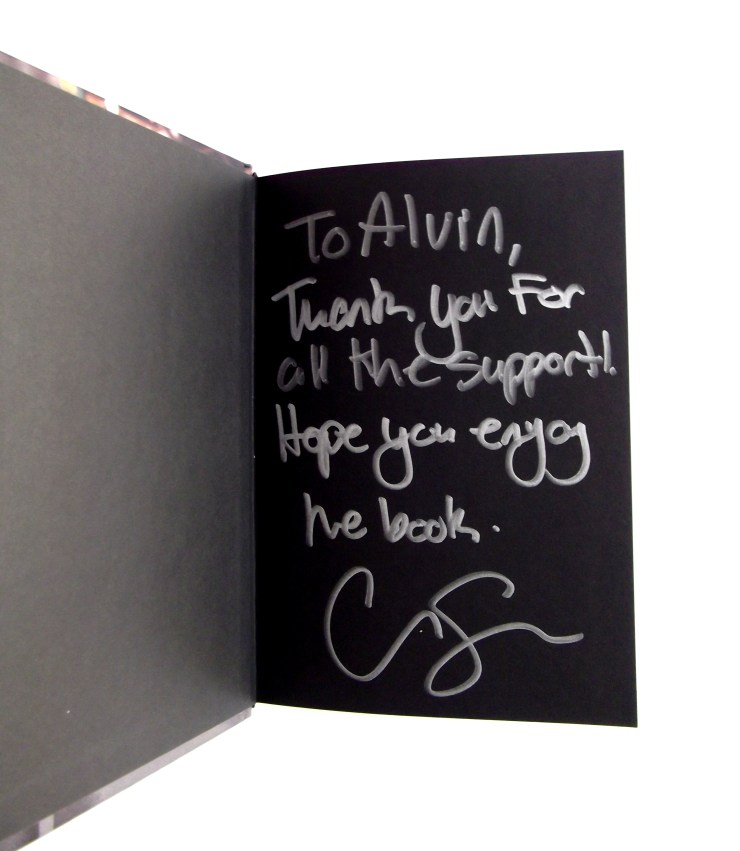 To Alvin,
Thank you For
all the support!
Hope you enjoy
the book.